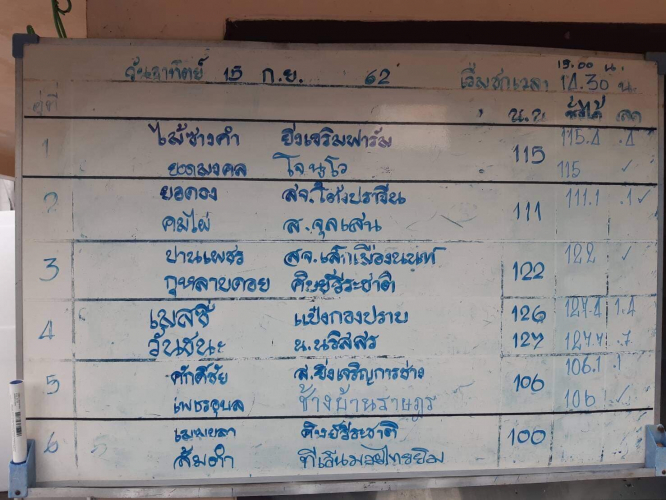 วันอาทิตย์ 15 ก.ย. 62 เริ่มชกเวลา 13.00 น.
14.30 น.
คู่ที่ น.น. ชั่งได้ ลด
1 ไม้ซางคำ ยิ่งเจริมฟาร์ม 115 115.4 .4
ยอดมงคล โจนุโว 115 ✓
2 ยอดอง สจ.โต้งปราจีน 111 111.1 .1 ✓
คมไผ่ ส.จุลเสน
3 ปานเพชร สจ.เล็กเมืองนนท์ 122 122 ✓
กุหลาบดอย ศิษย์วีระชาติ
4 เมสซี่ แป๋งกองปราบ 126 127.4 1.4
วันชนะ น.นริสสร 127 127.7 .7
5 ศักดิ์ชัย ส.ยิ่งเจริญการช่าง 106 106.1 .1
เพชรอุบล ช้างบ้านราษฎร 106 ✓
6 ศิษย์วีระชาติ 100 ✓
ส้มตำ ทีเด็นมวยไทยยิม